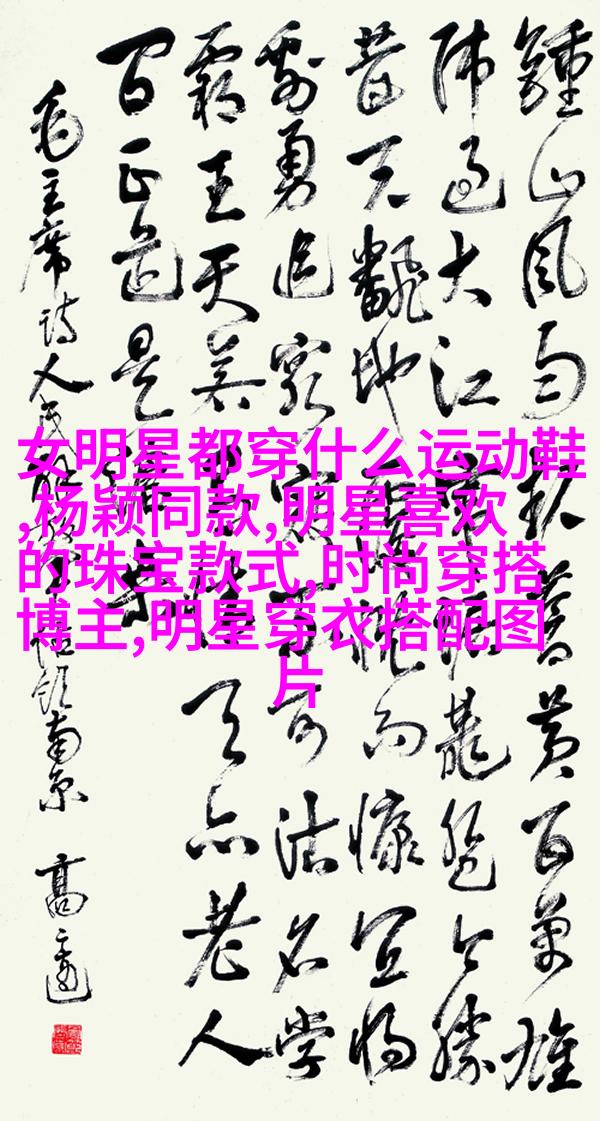 女明星都穿什么运动鞋
,杨颖同款,明星喜欢
的珠宝款式,时尚穿搭
博主,明星穿衣搭配图
片
鍾山風雨起蒼黄百萬雄
師過大江虎踞龍盤今勝
昔天飜地覆慨而慷宜將
剩勇追窮寇不可沽名學
霸王天若有情天亦老人
間正道是滄桑
毛主席詩人民解放軍占領南京 高